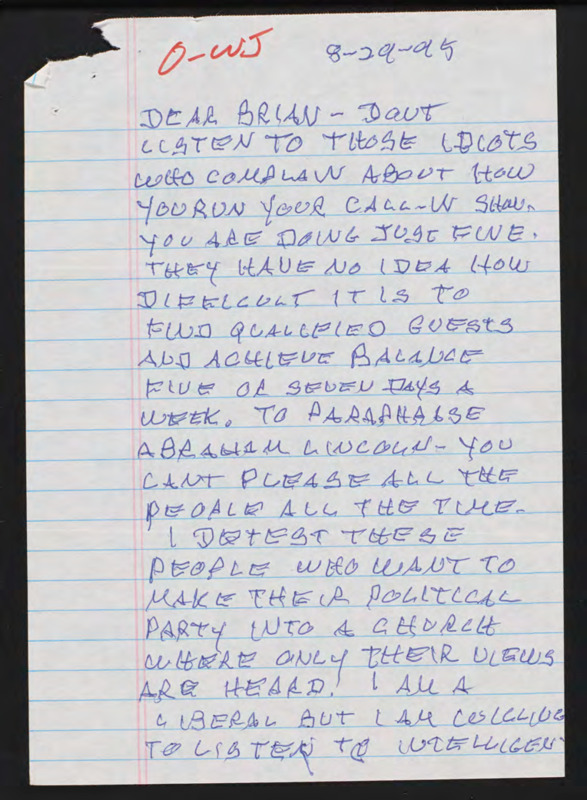 O-WJ 8-29-95
DEAR BRIAN - DONT
LISTEN TO THOSE IDIOTS
WHO COMPLAIN ABOUT HOW
YOU RUN YOUR CALL-IN SHOW.
YOU ARE DOING JUST FINE.
THEY HAVE NO IDEA HOW
DIFFICULT IT IS TO
FIND QUALIFIED GUESTS
AND ACHIEVE BALANCE
FIVE OR SEVEN DAYS A
WEEK. TO PARAPHASE
ABRAHAM LINCOLN - YOU
CANT PLEASE ALL THE
PEOPLE ALL THE TIME.
I DETEST THESE
PEOPLE WHO WANT TO
MAKE THEIR POLITICAL
PARTY INTO A CHURCH
WHERE ONLY THEIR VIEWS
ARE HEARD. I AM A
LIBERAL BUT I AM WILLING
TO LISTEN TO INTELLIGENT